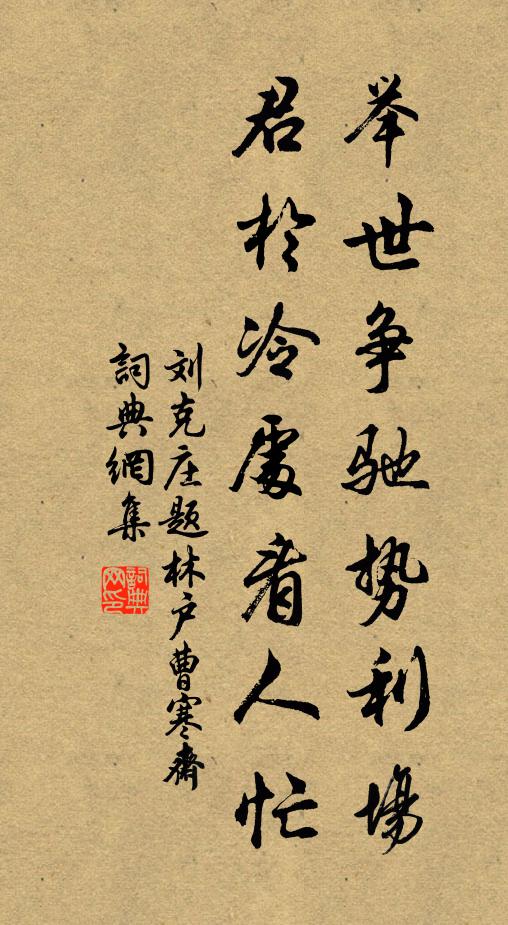 举世争驰势利场
君於冷处看人忙
刘克庄题林户曹寒斋
詞典網集
詞典网印